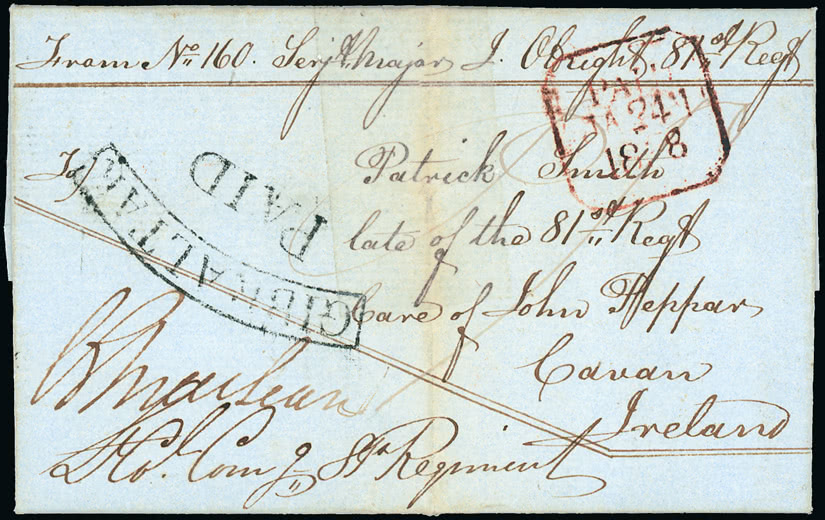 From No. 160. Serjt. Major J. Obright 81st Regt
PAID
JA 24
18 8
To
Patrick Smith
late of the 81st Regt
Care of John Heppar
Cavan
Ireland
PAID
GIBRALTAR
Lt Col. Comg 81st Regiment